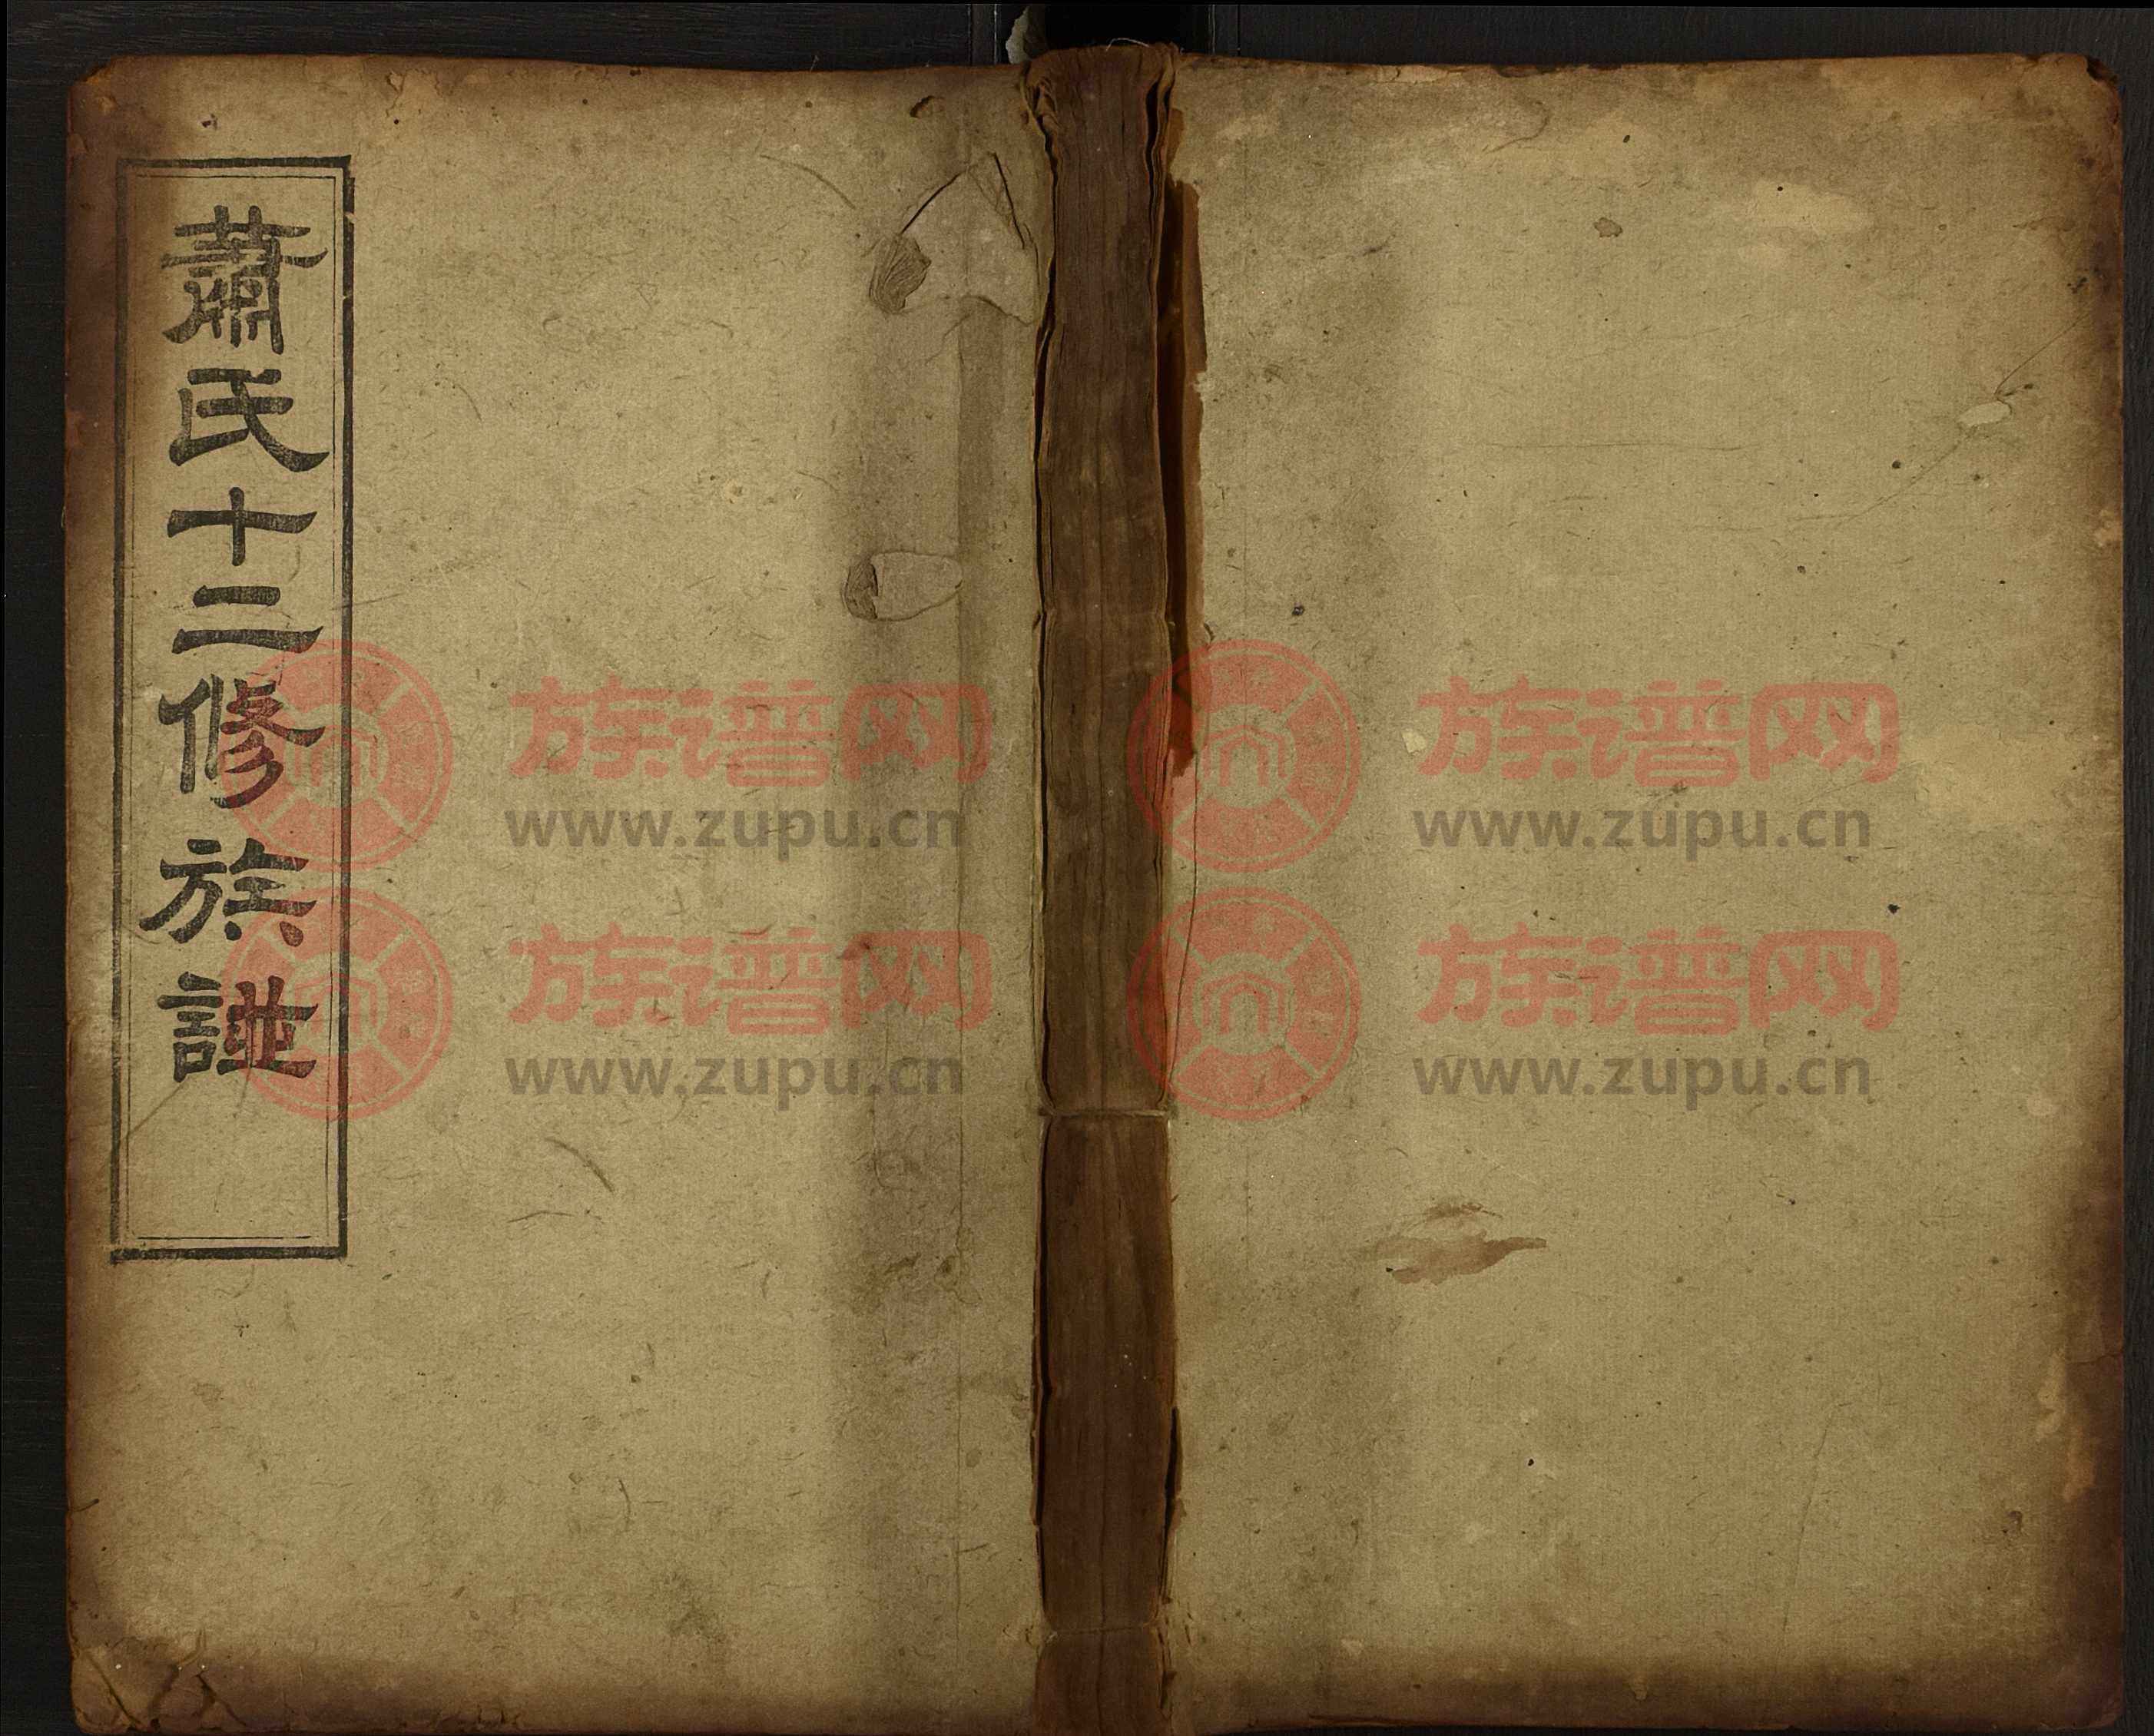 蕭氏十二修族諩
族谱网
www.zupu.cn
族谱网
www.zupu.cn
族谱网
www.zupu.cn
族谱网
www.zupu.cn